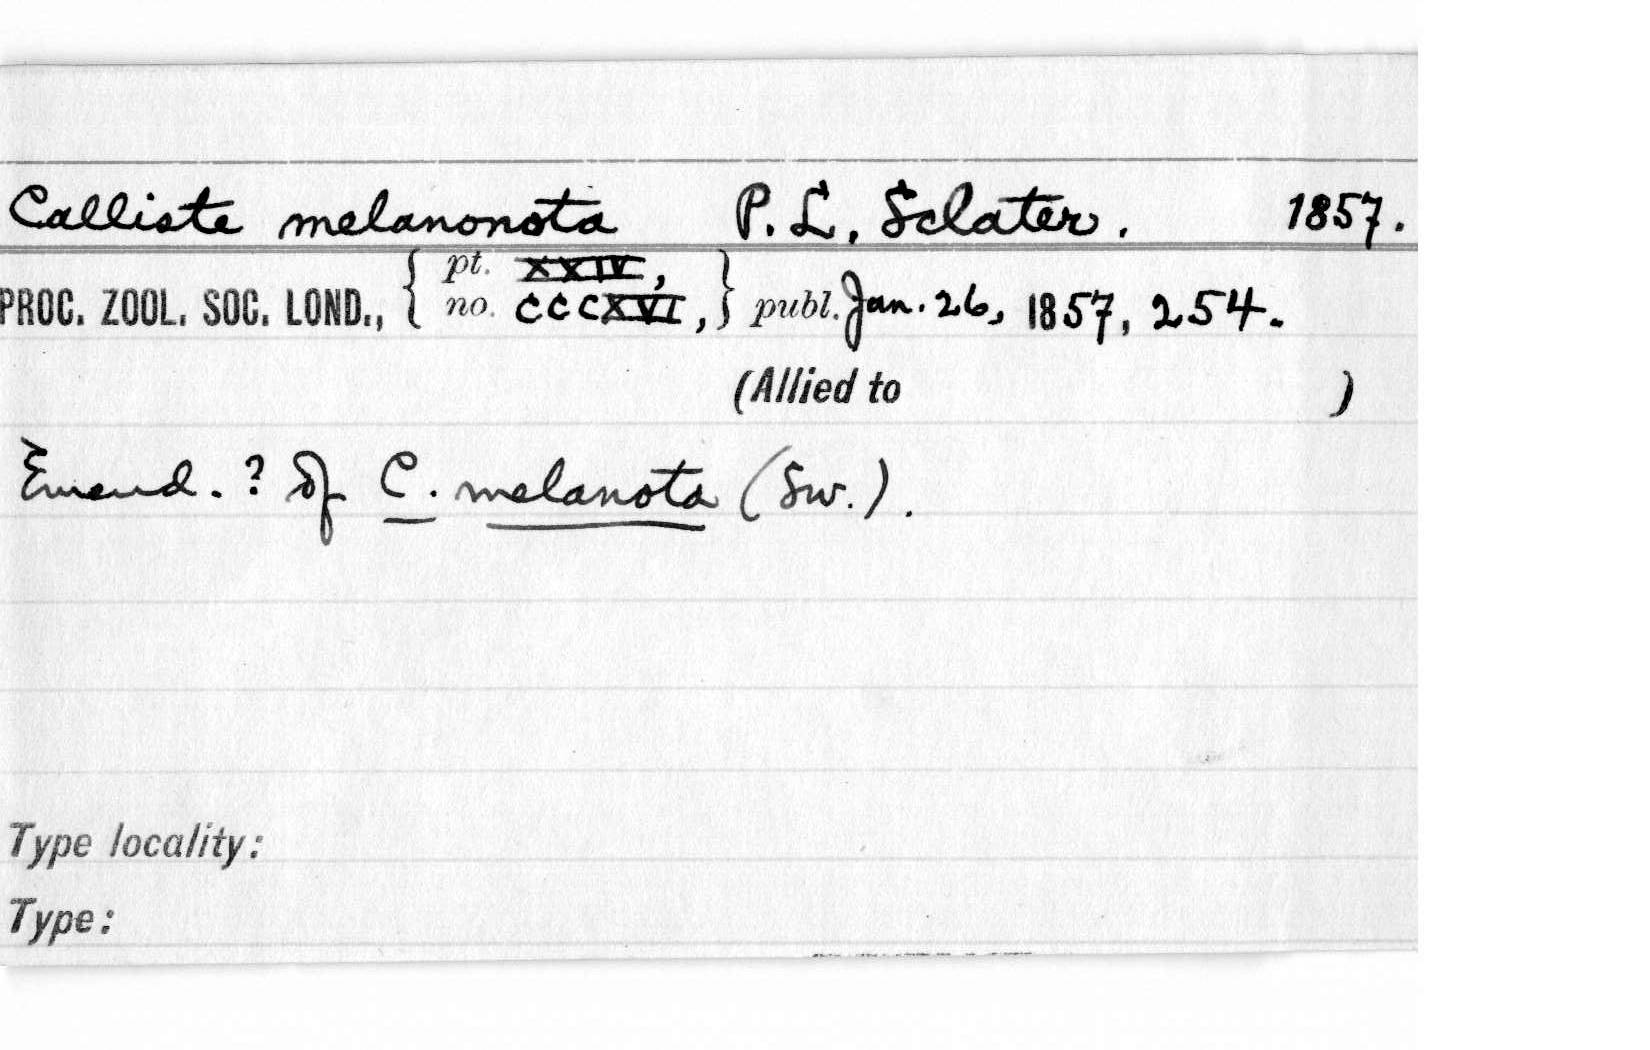 Calliste melanonota P. L. Sclater. 1857.
PROC. ZOOL. SOC. LOND., { pt. XXIV, no. CCCXVI, } publ. Jan. 26, 1857, 254.
(Allied to )
Emend. ? of C. melanota (Sw.).
Type locality:
Type: